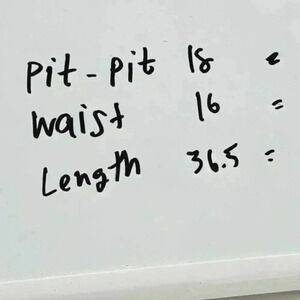 Pit-Pit 18 =
waist 16 =
Length 36.5 =